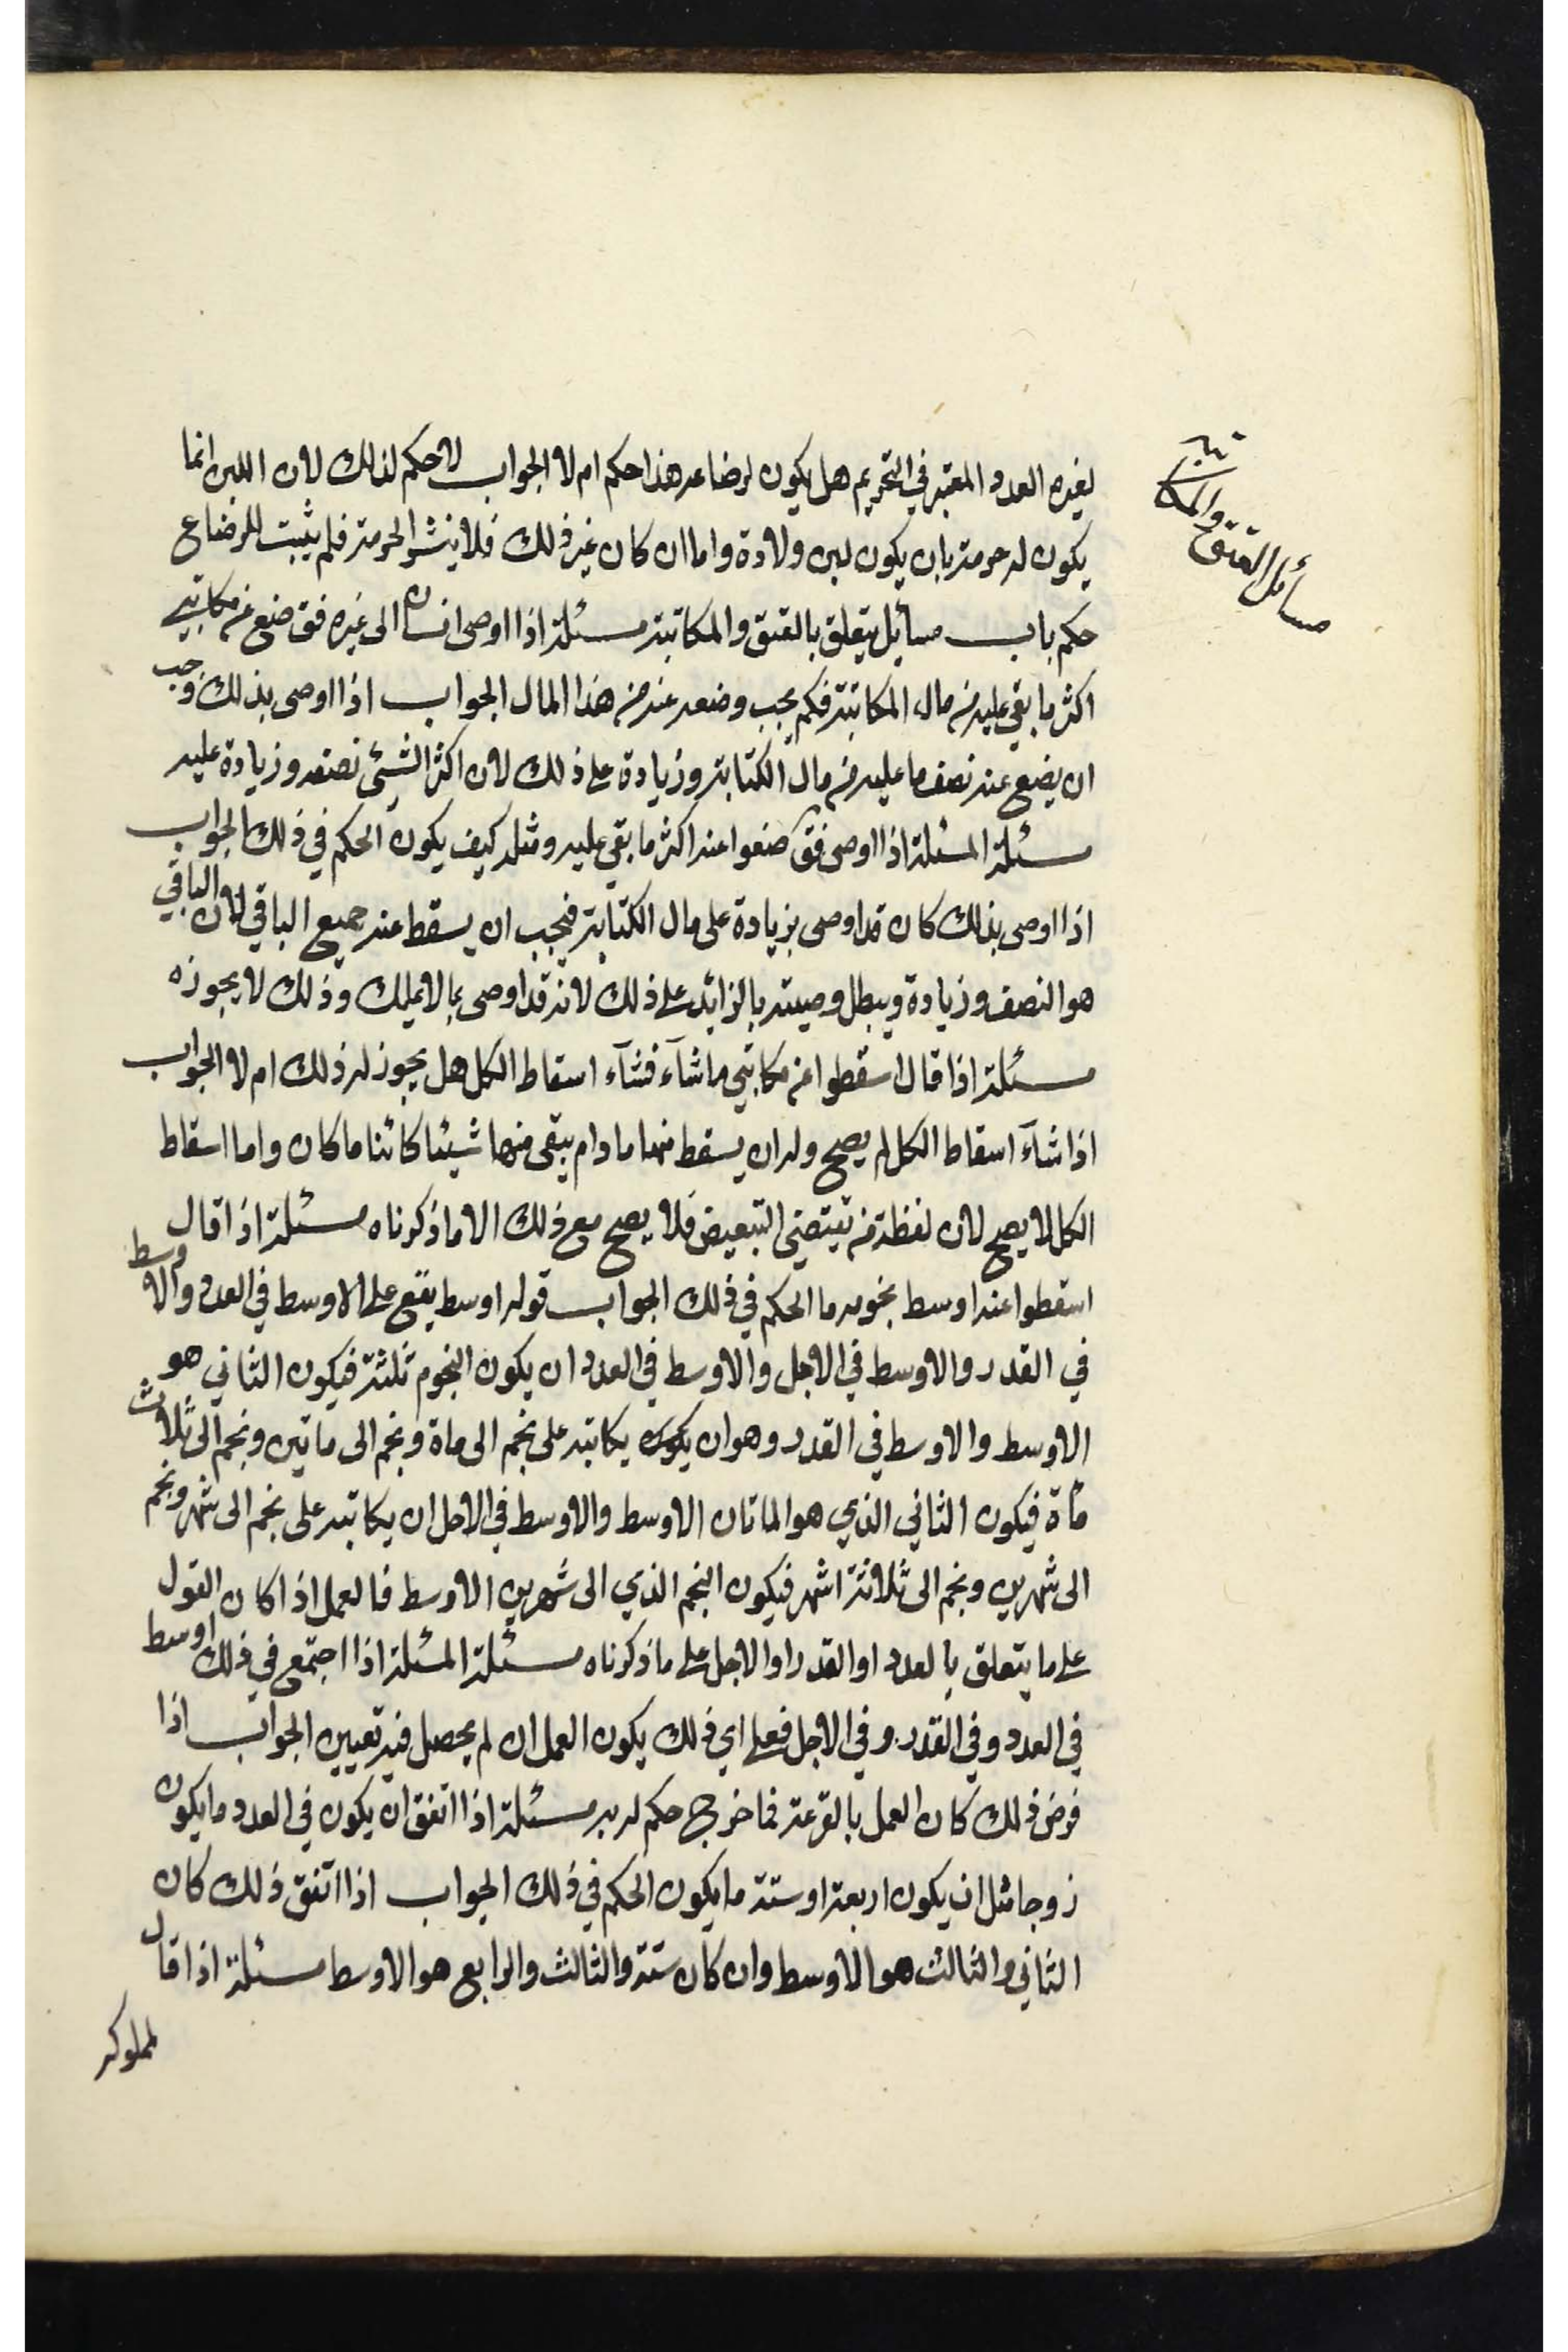 مسائل العتق والمكاتبة
لغيره العدد المعتبر في التحريم هل يكون لرضاعه هذا حكم ام لا الجواب لا حكم لذلك لان اللبن انما
يكون له حرمته بان يكون لبن ولادة واما ان كان غير ذلك فلا ينشر الحرمة فلم يثبت للرضاع
حكم باب مسأيل يتعلق بالعتق والمكاتبة مسئلة اذا اوصى انسان الى غيره فق ضع عن مكاتبي
اكثر ما بقي عليه من مال المكاتبة فكم يجب وضعه عنه من هذا المال الجواب اذا اوصى بذلك وجب
ان يضع عنه نصف ما عليه من مال الكتابة وزيادة على ذلك لان اكثر الشيئ نصفه وزيادة عليه
مسئلة المسئلة اذا اوصى فق ضعوا عنه اكثر ما بقي عليه ومثله كيف يكون الحكم في ذلك الجواب
اذا اوصى بذلك كان قد اوصى بزيادة على مال الكتابة فيجب ان يسقط عنه جميع الباقي لان الباقي
هو النصف وزيادة ويبطل وصيته بالزائد على ذلك لانه قد اوصى بما لا يملك وذلك لا يجوزه
مسئلة اذا قال اسقطوا عن مكاتبي ما شآء فشآء اسقاط الكل هل يجوز له ذلك ام لا الجواب
اذا شآء اسقاط الكل لم يصح وله ان يسقط منها ما دام يبقى منها شيئا كائنا ما كان واما اسقاط
الكل لا يصح لان لفظة من تقتضي التبعيض فلا يصح مع ذلك الا ما ذكرناه مسئلة اذا قال
اسقطوا عنه اوسط نجومه ما الحكم في ذلك الجواب قوله اوسط يقع على الاوسط في العدد والاوسط
في القدر والاوسط في الاجل والاوسط في العدد ان يكون النجوم ثلثة فيكون الثاني هو
الاوسط والاوسط في القدر وهو ان يكون يكاتبه على نجم الى ماة ونجم الى ماتين ونجم الى ثلاث
ماة فيكون الثاني الذي هو الماتان الاوسط والاوسط في الاجل ان يكاتبه على نجم الى شهر ونجم
الى شهرين ونجم الى ثلاثة اشهر فيكون النجم الذي الى شهرين الاوسط فالعمل اذا كان القول
على ما يتعلق بالعدد او القدر او الاجل على ما ذكرناه مسئلة المسئلة اذا اجتمع في ذلك اوسط
في العدد وفي القدر وفي الاجل فعلى اي ذلك يكون العمل ان لم يحصل فيه تعيين الجواب اذا
فرض ذلك كان العمل بالقرعة فما خرج حكم له به مسئلة اذا اتفق ان يكون في العدد ما يكون
زوجا مثل ان يكون اربعة او ستة ما يكون الحكم في ذلك الجواب اذا اتفق ذلك كان
الثاني والثالث هو الاوسط وان كان ستة والثالث والرابع هو الاوسط مسئلة اذا قال
لمملوكه